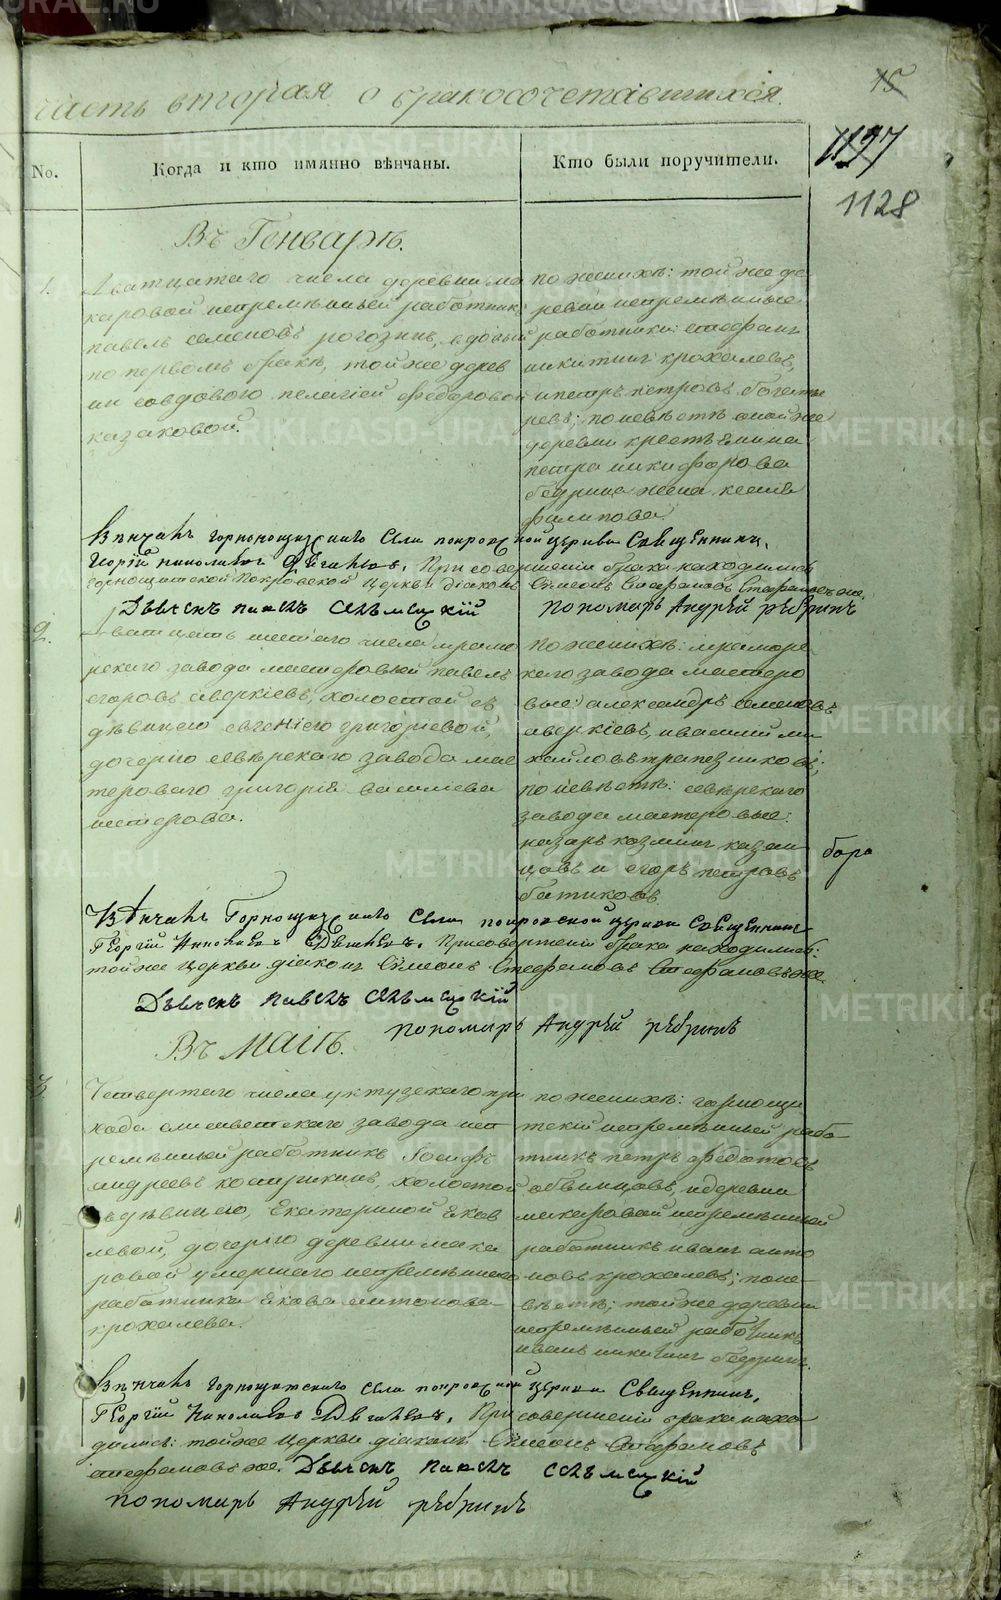 часть вторая о бракосочетавшихся.
15
1127
1128
No.
Когда и кто имянно вѣнчаны.
Кто были поручители.
Въ Генварѣ.
1.
Дватцатаго числа деревни ма
каровой непремѣнный работникъ
павелъ семеновъ рогозинъ, вдовый
по первомъ бракѣ, той же дерев
ни совдовою пелагіей федоровой
казаковой.
по женихѣ: той же де
ревни непремѣнные
работники: стефанъ
никитинъ крохалевъ,
ипетръ петровъ богаты
ревъ; по невѣстѣ оной же
деревни крестьянина
петра никифорова
бедрина жена ксенія
филипова
Вѣнчалъ горнощитскаго села покровской церкви Священникъ,
Георгій николаевъ При совершеніи брака находились
горнощитской Покровской церкви діаконъ Сѵмеонъ Стефановъ Стефановъ же.
Дьячекъ павелъ
пономарь Андрей рѣбринъ
2.
Дватцать шестаго числа мрамо
рскаго завода мастеровый павелъ
егоровъ аверкіевъ, холостой съ
дѣвицею евгеніею григорьевой,
дочерію сѣвѣрскаго завода мас
тероваго григорія васильева
нестерова.
по женихѣ: мраморс
каго завода мастеро
вые: александръ семеновъ
аверкіевъ, ивасилій ми
хайловъ трапезниковъ;
по невѣстѣ: сѣвѣрскаго
завода мастеровые:
назаръ козминъ казан
цовъ и егоръ петровъ
батиковъ.
Вѣнчалъ Горнощитскаго Села покровской церкви Священникъ
Георгій Николаевъ При совершеніи брака находились:
той же церкви діаконъ Сѵмеонъ Стефановъ Стефановъ же.
Дьячекъ павелъ
пономарь Андрей рѣбринъ
Въ маіѣ.
3.
Четвертаго числа уктузскаго при
хода елисаветскаго завода неп
ремѣнный работникъ Іосифъ
андреевъ холостой
съдѣвицею, Екатериной Яков
левой, дочерію деревни мака
ровой умершаго непремѣннаго
работника Якова антонова
крохалева.
по женихѣ: горнощи
тскій непремѣнный рабо
тникъ петръ федотовъ
обвинцовъ, идеревни
макаровой непремѣнный
работникъ иванъ анто
новъ крохалевъ; поне
вѣстѣ; той же деревни
непремѣнный работникъ
иванъ никитинъ бедринъ.
Вѣнчалъ горнощитскаго села покровской церкви Священникъ,
Георгій Николаевъ При совершеніи брака нахо
дились: той же церкви діаконъ Сѵмеонъ Стефановъ
стефановъ же. Дьячекъ павелъ
пономарь Андрей рѣбринъ
METRIKI.GASO-URAL.RU